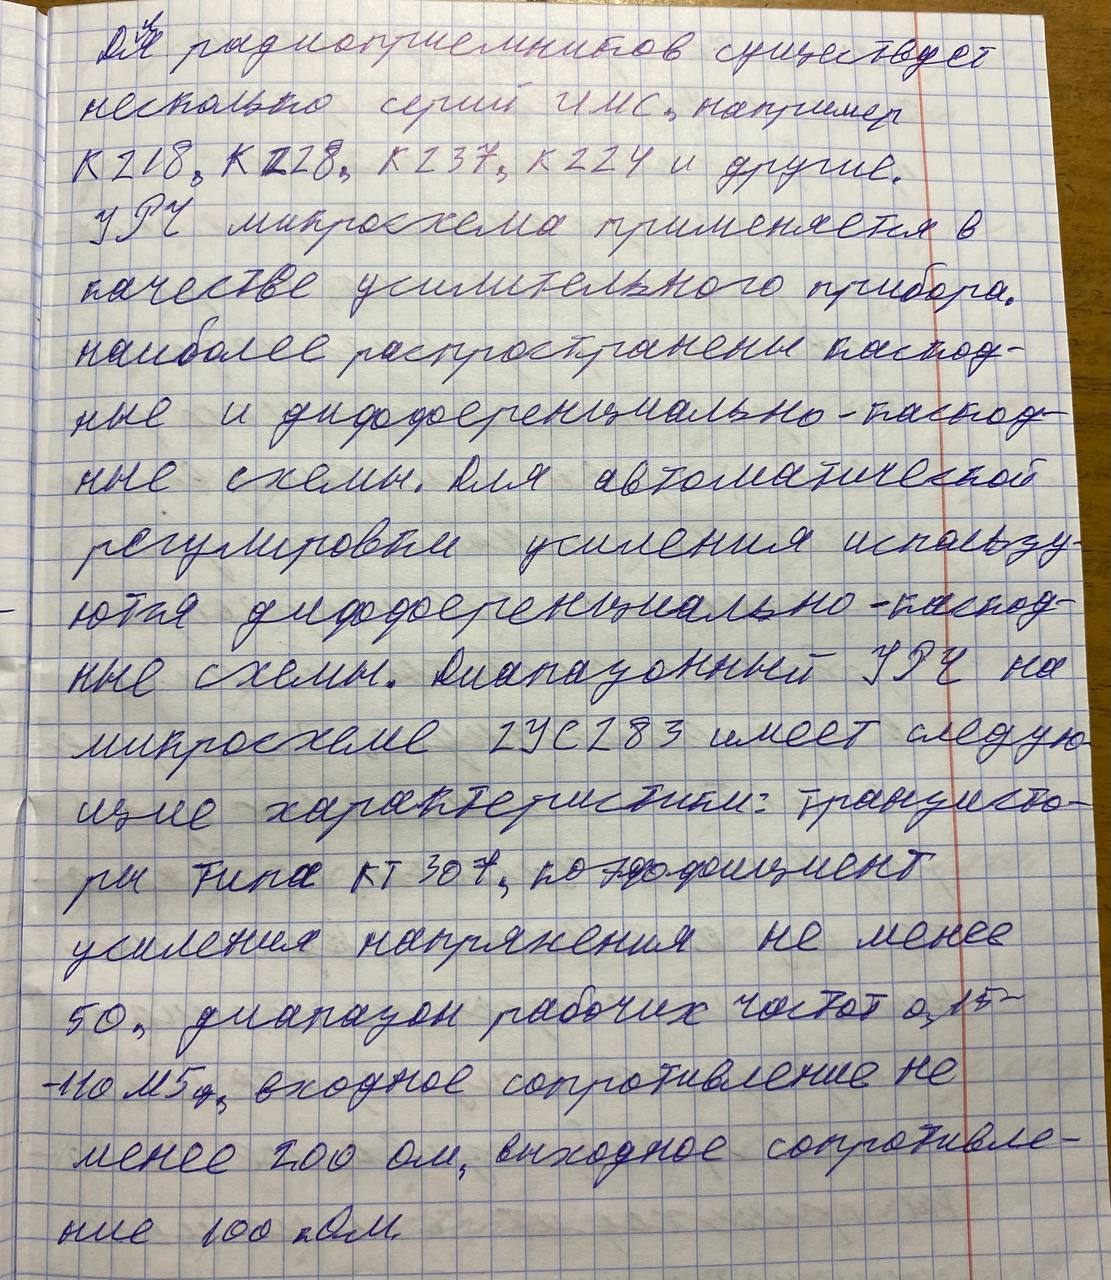 Для радиоприемников существует
несколько серий ИМС, например
К218, К228, К237, К224 и другие.
УРЧ микросхема применяется в
качестве усилительного прибора.
наиболее распространены каскод-
ные и дифференциально-каскод-
ные схемы. Для автоматической
регулировки усиления использу-
ются дифференциально-каскод-
ные схемы. Диапазонный УРЧ на
микросхеме 2УС283 имеет следую-
щие характеристики: транзисто-
ры типа КТ307, коэффициент
усиления напряжения не менее
50, диапазон рабочих частот 0,15-
-110 МГц, входное сопротивление не
менее 200 ом, выходное сопротивле-
ние 100 кОм.